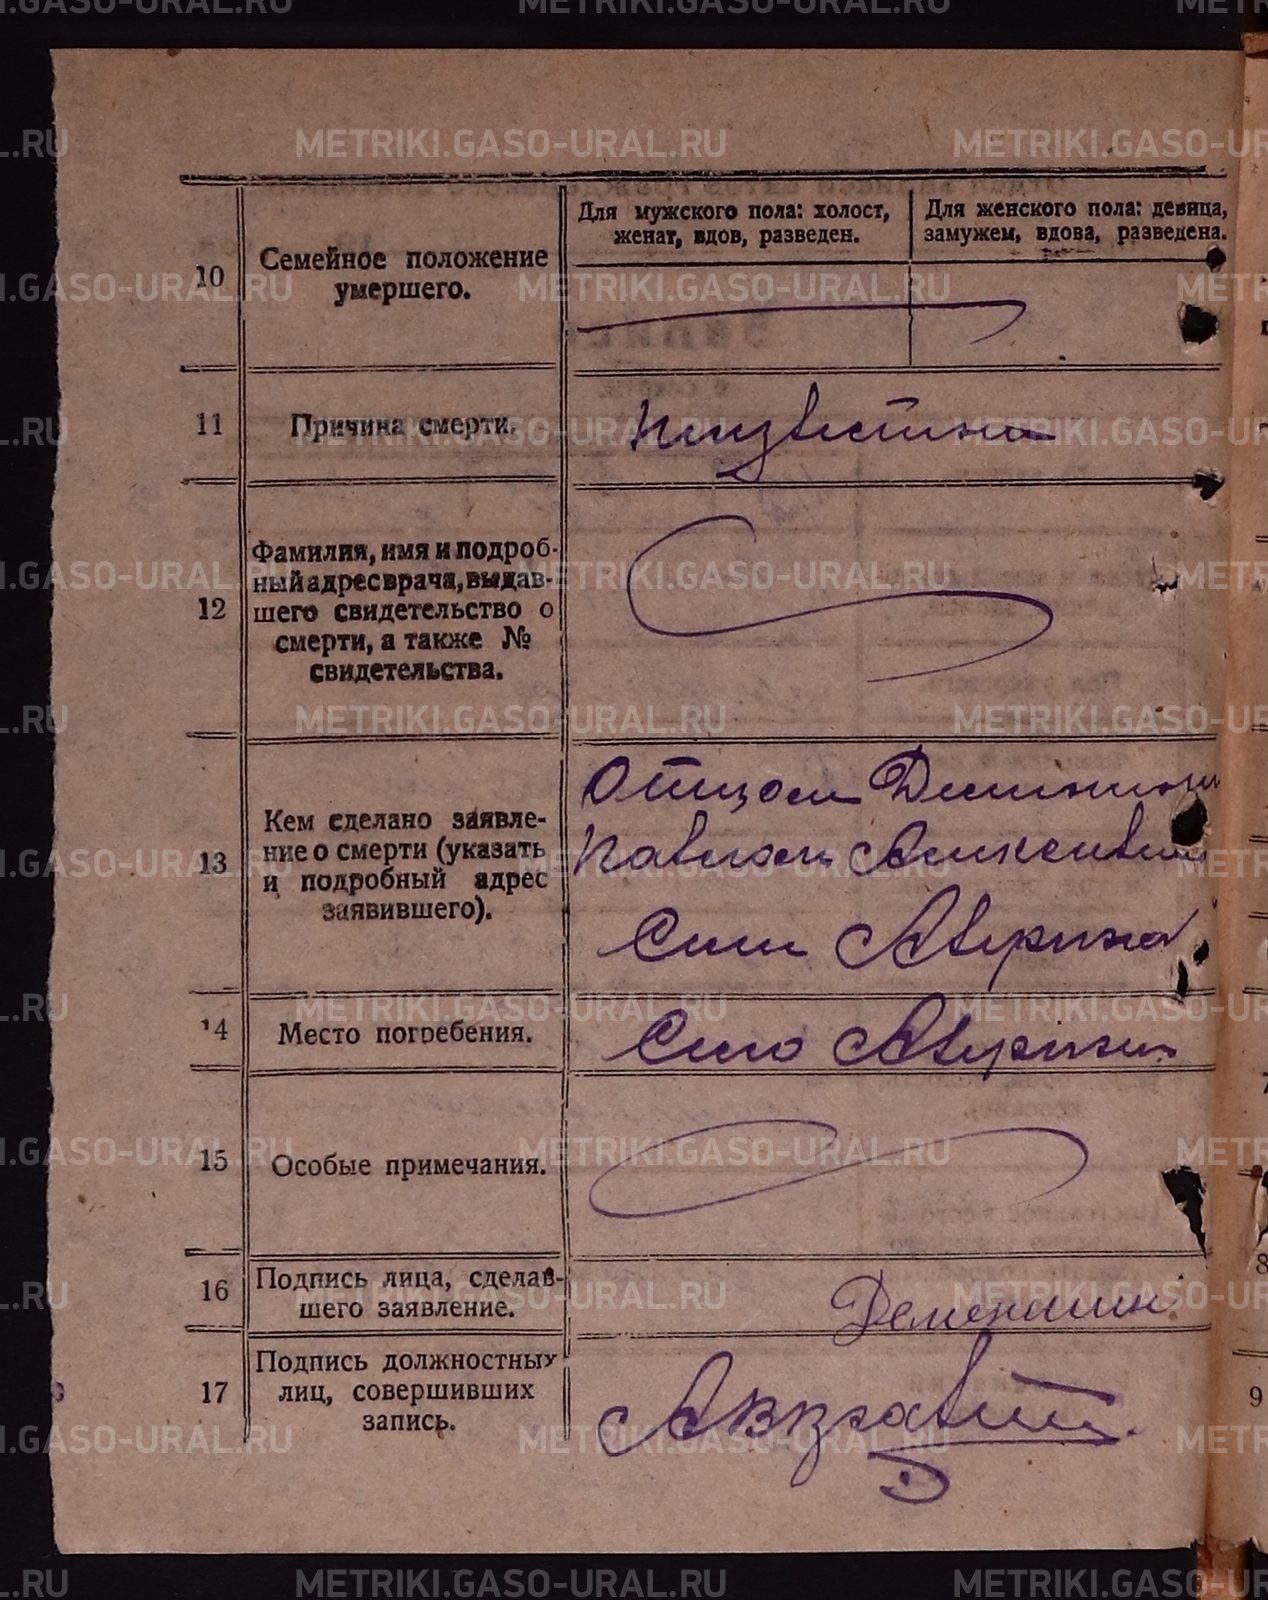 Для мужского пола: холост, женат, вдов, разведен.
Для женского пола: девица, замужем, вдова, разведена.
10
Семейное положение
умершего.
11
Причина смерти.
Неизвестна
12
Фамилия, имя и подроб-
ный адрес врача, выдав-
шего свидетельство о
смерти, а также №
свидетельства.
13
Кем сделано заявле-
ние о смерти (указать
и подробный адрес
заявившего).
Отцом
Павлом
Село Аверино
14
Место погребения.
Село Аверино
15
Особые примечания.
16
Подпись лица, сделав-
шего заявление.
Деменшин
17
Подпись должностных
лиц, совершивших
запись.
8
9
METRIKI.GASO-URAL.RU